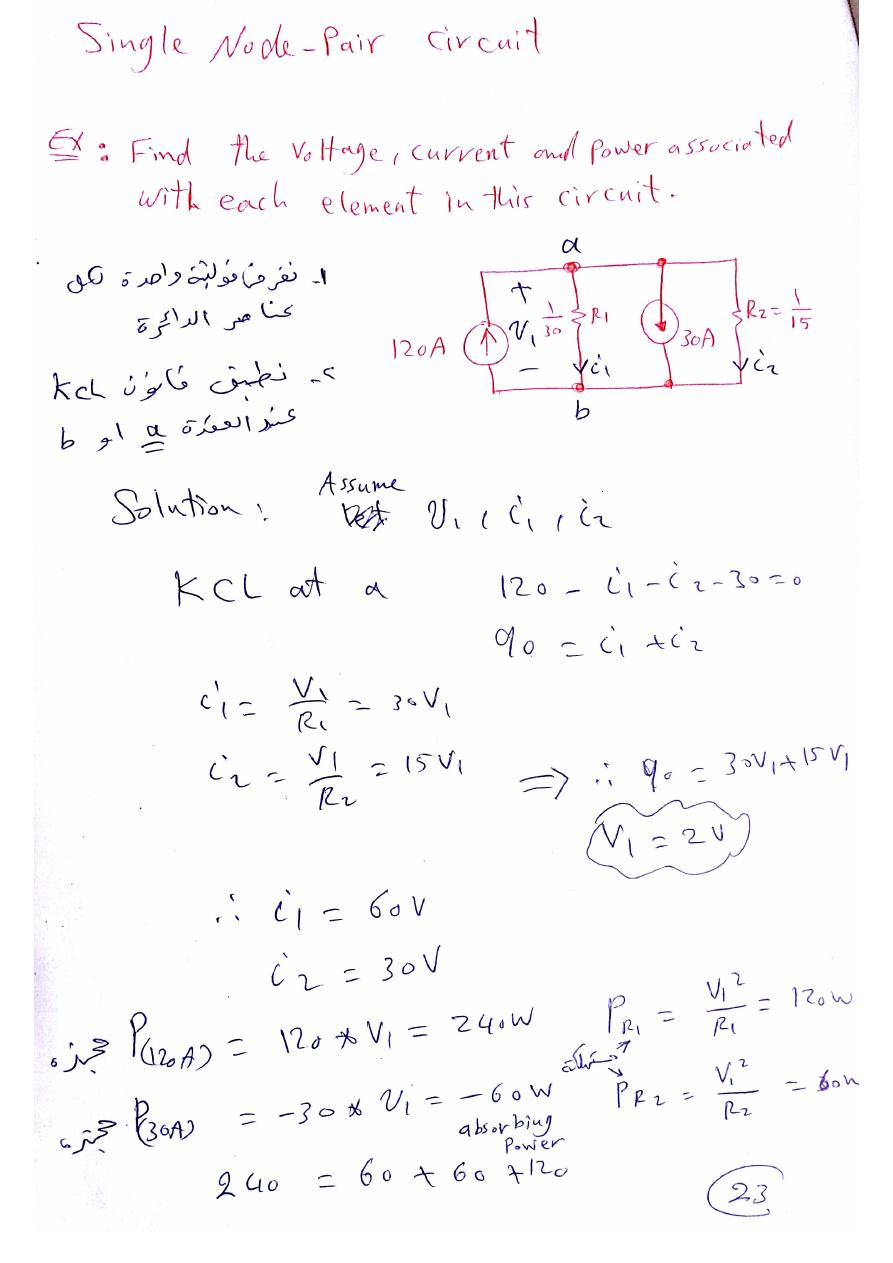 Single Node-Pair Circuit
Ex: Find the Voltage, current and power associated
with each element in this circuit.
١- نفرض فولتية واحدة لكل
عناصر الدائرة
٢- نطبق قانون KCL
عند العقدة a او b
a
+
V1
-
120A
1/30
R1
i1
30A
R2 = 1/15
i2
b
Solution:
Assume
V1, i1, i2
KCL at a
120 - i1 - i2 - 30 = 0
90 = i1 + i2
i1 = V1/R1 = 30V1
i2 = V1/R2 = 15V1
⇒ ∴ 90 = 30V1 + 15V1
V1 = 2V
∴ i1 = 60V
i2 = 30V
مجهزة P(120A) = 120 * V1 = 240W
PR1 = V1²/R1 = 120W
PR2 = V1²/R2 = 60W
مجهزة P(30A) = -30 * V1 = -60W
absorbing
Power
240 = 60 + 60 + 120
23